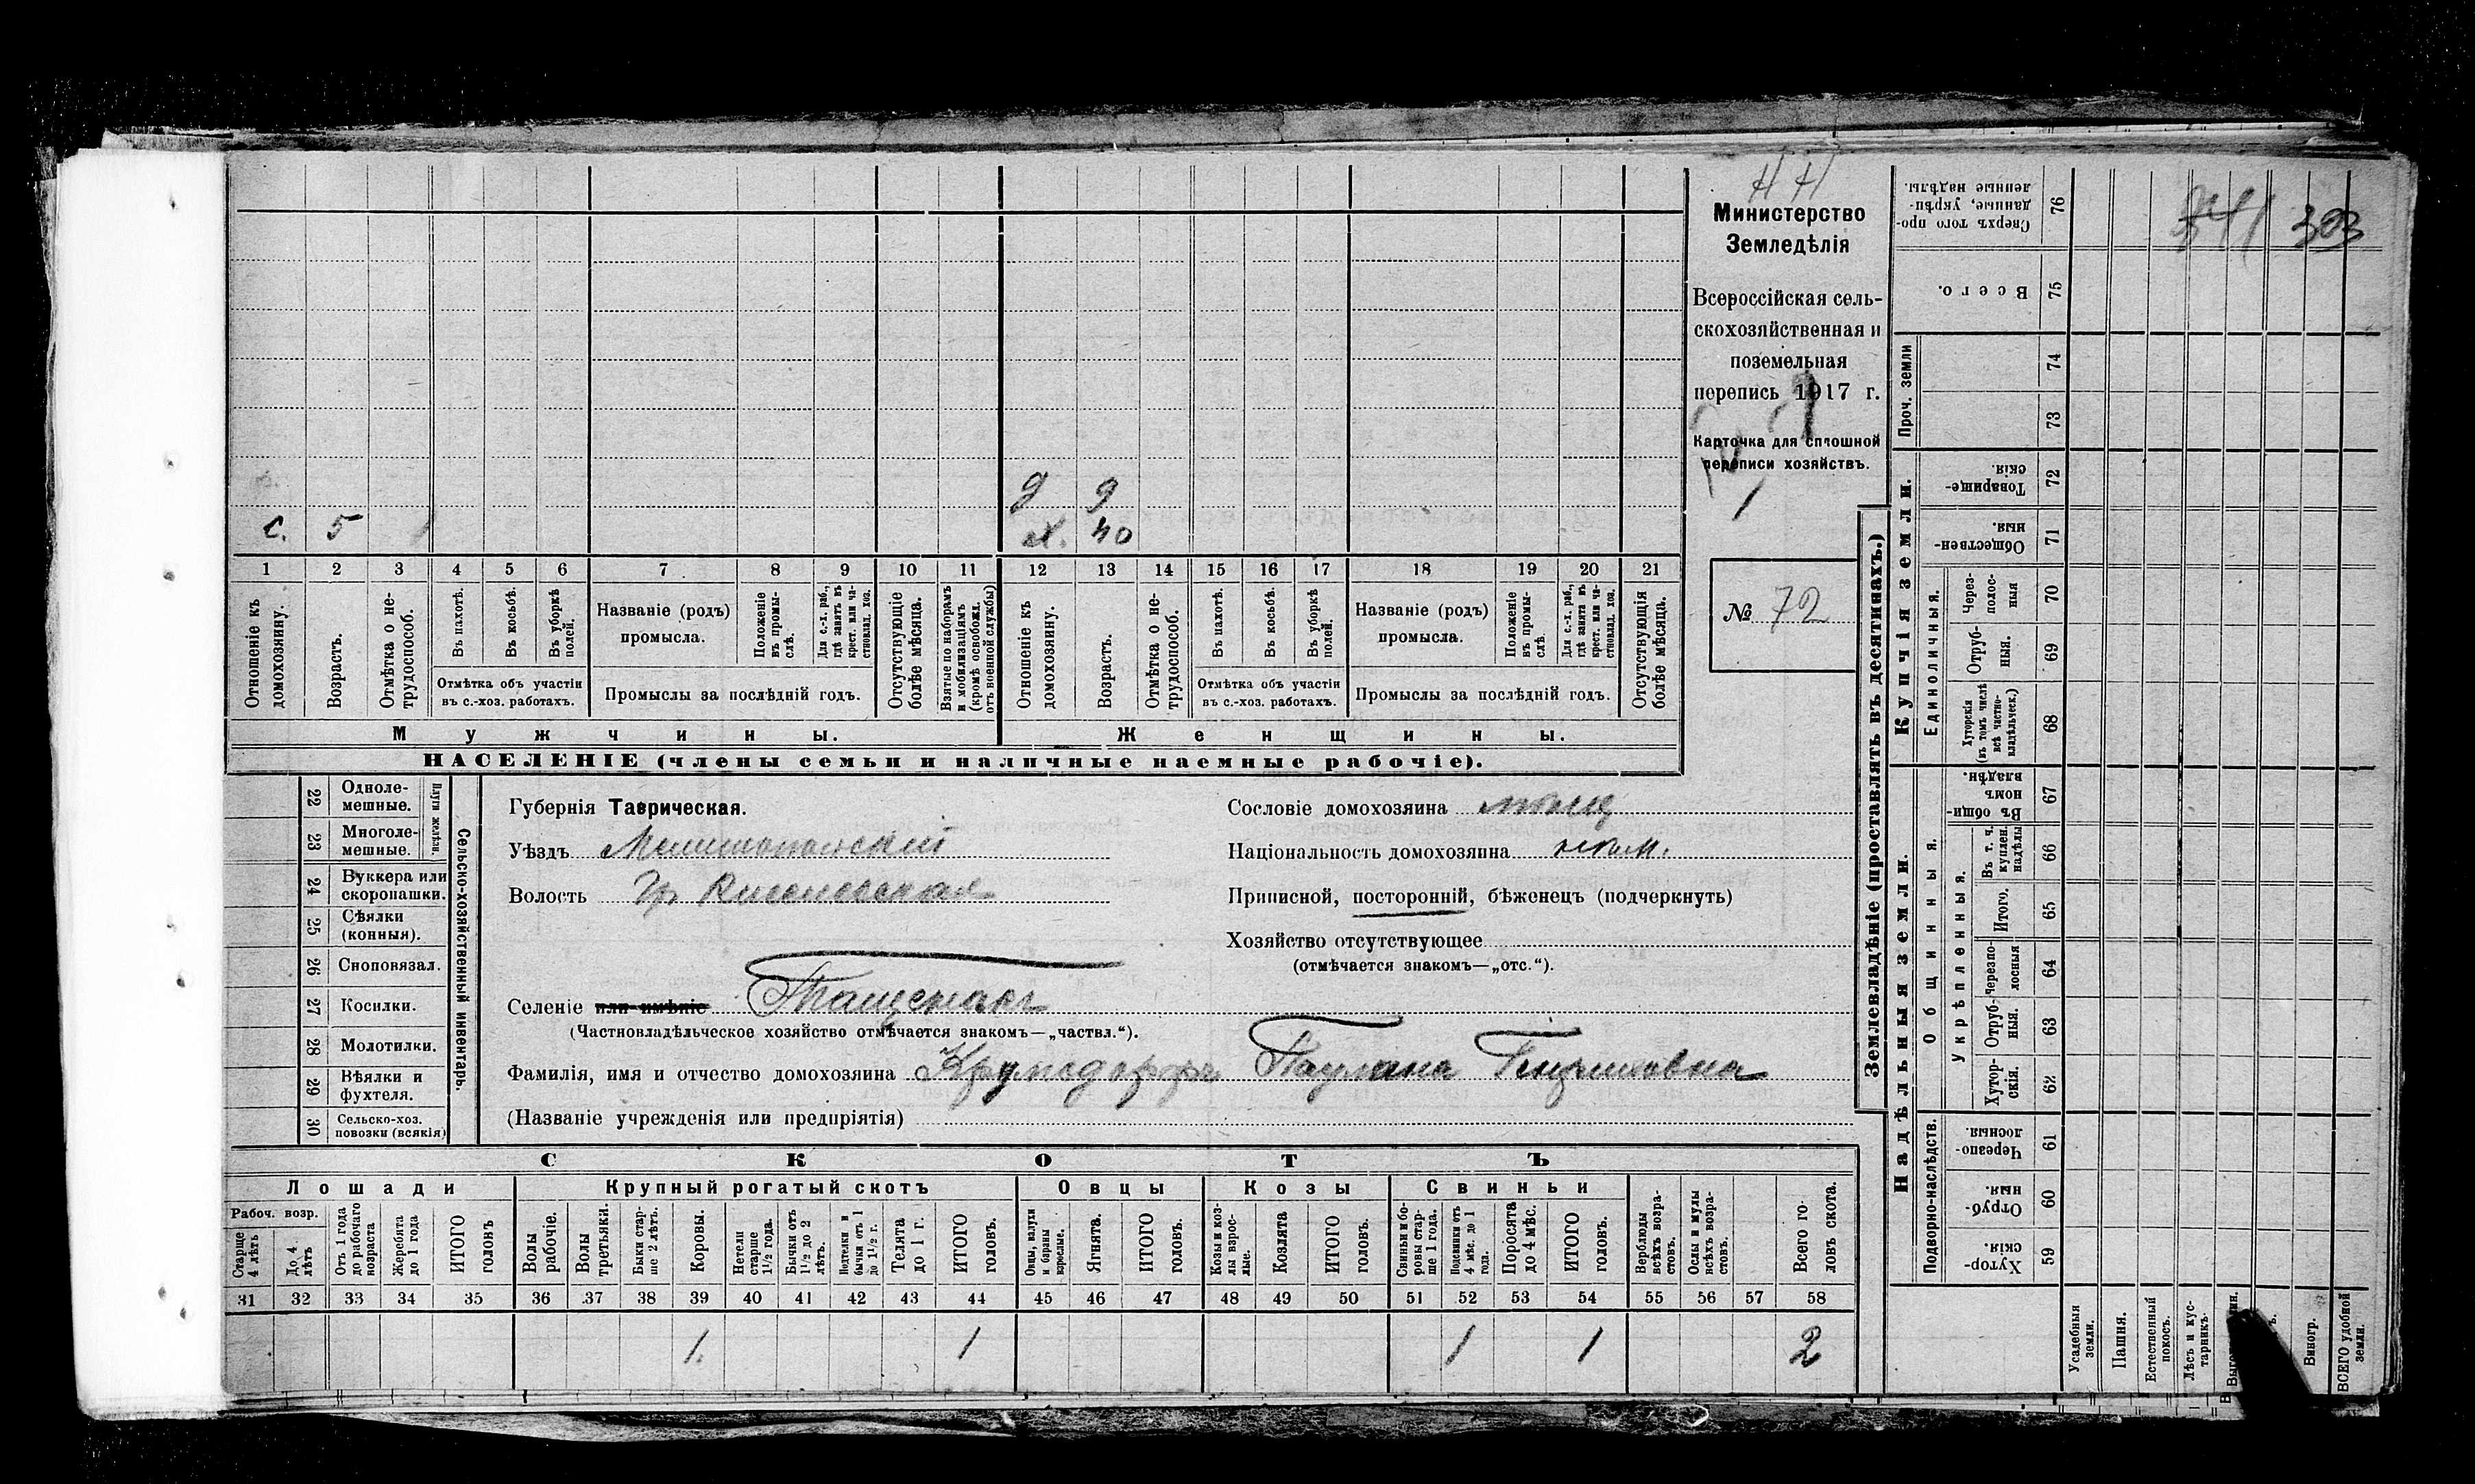 Н Н
Министерство
Земледѣлія
Всероссійская сель-
скохозяйственная и
поземельная
перепись 1917 г.
Карточка для сплошной
переписи хозяйствъ.
1
№ 72
д 9
с. 5
х. 40
1 2 3 4 5 6 7 8 9 10 11 12 13 14 15 16 17 18 19 20 21
Отношеніе къ домохозяину.
Возрастъ.
Отмѣтка о не-трудоспособ.
Въ пахотѣ.
Въ косьбѣ.
Въ уборкѣ полей.
Отмѣтка объ участіи
въ с.-хоз. работахъ.
Названіе (родъ)
промысла.
Положеніе въ промы-слѣ.
Для с.-х. раб., гдѣ занятъ въ крест. или ча-стновлад. хоз.
Промыслы за послѣдній годъ.
Отсутствующіе болѣе мѣсяца.
Взятые по наборамъ и мобилизаціямъ (кромѣ освобожд. отъ военной службы)
Отношеніе къ домохозяину.
Возрастъ.
Отмѣтка о не-трудоспособ.
Въ пахотѣ.
Въ косьбѣ.
Въ уборкѣ полей.
Отмѣтка объ участіи
въ с.-хоз. работахъ.
Названіе (родъ)
промысла.
Положеніе въ промы-слѣ.
Для с.-х. раб., гдѣ занята въ крест. или ча-стновлад. хоз.
Промыслы за послѣдній годъ.
Отсутствующія болѣе мѣсяца.
Мужчины.
Женщины.
НАСЕЛЕНІЕ (члены семьи и наличные наемные рабочіе).
Сельско-хозяйственный инвентарь.
Плуги желѣзн.
22 Одноле-мешные.
23 Многоле-мешные.
24 Вуккера или скоропашки.
25 Сѣялки (конныя).
26 Сноповязал.
27 Косилки.
28 Молотилки.
29 Вѣялки и фухтеля.
30 Сельско-хоз. повозки (всякія)
Губернія Таврическая.
Уѣздъ Мелитопольскій
Волость Гр Кисневская
Селеніе или имѣніе Тащенакъ
(Частновладѣльческое хозяйство отмѣчается знакомъ—„частвл.“).
Фамилія, имя и отчество домохозяина Крумсдорфъ Паулина
(Названіе учрежденія или предпріятія)
Сословіе домохозяина мѣщ
Національность домохозяина нѣм.
Приписной, посторонній, бѣженецъ (подчеркнуть)
Хозяйство отсутствующее
(отмѣчается знакомъ—„отс.“).
СКОТЪ
Лошади
Крупный рогатый скотъ
Овцы
Козы
Свиньи
Рабоч. возр.
Старше 4 лѣтъ
До 4 лѣтъ
Отъ 1 года до рабочаго возраста
Жеребята до 1 года
ИТОГО головъ
Волы рабочіе.
Волы третьяки.
Быки стар-ше 2 лѣтъ.
Коровы.
Нетели старше 1½ года.
Бычки отъ 1½ до 2 лѣтъ.
Подтелки и бычки отъ 1 до 1½ г.
Телята до 1 г.
ИТОГО головъ.
Овцы, валухи и бараны взрослые.
Ягнята.
ИТОГО головъ.
Козы и коз-лы взрос-лые.
Козлята
ИТОГО головъ.
Свиньи и бо-ровы стар-ше 1 года.
Подсвинки отъ 4 мѣс. до 1 года.
Поросята до 4 мѣс.
ИТОГО головъ.
Верблюды всѣхъ возра-стовъ.
Ослы и мулы всѣхъ возра-стовъ.
Всего го-ловъ скота.
31 32 33 34 35 36 37 38 39 40 41 42 43 44 45 46 47 48 49 50 51 52 53 54 55 56 57 58
1. 1 1 1 2
Землевладѣніе (проставлять въ десятинахъ.)
Сверхъ того про-данные, укрѣп-ленные надѣлы. 76
303
Всего. 75
Проч. земли
74
73
Купчія земли.
Товарище-скія. 72
Обществен-ныя. 71
Единоличныя.
Через-полос-ныя 70
Отруб-ныя. 69
Хуторскія (въ томъ числѣ всѣ частно-владѣльческ.) 68
Надѣльныя земли.
Общинныя.
Въ общин-номъ владѣн. 67
Укрѣпленныя.
Въ т. ч. куплен. надѣлы 66
Итого. 65
Черезпо-лосныя 64
Отруб-ныя. 63
Хутор-скія. 62
Подворно-наслѣдств.
Черезпо-лосныя. 61
Отруб-ныя. 60
Хутор-скія. 59
Усадебныя земли.
Пашня.
Естественный покосъ.
Лѣсъ и кус-тарникъ.
Виногр.
ВСЕГО удобной земли.